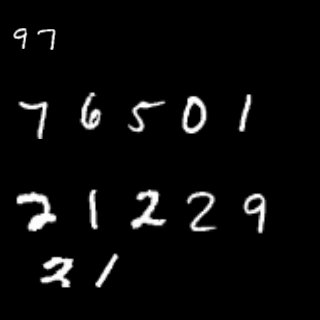 97
76501
21229
21